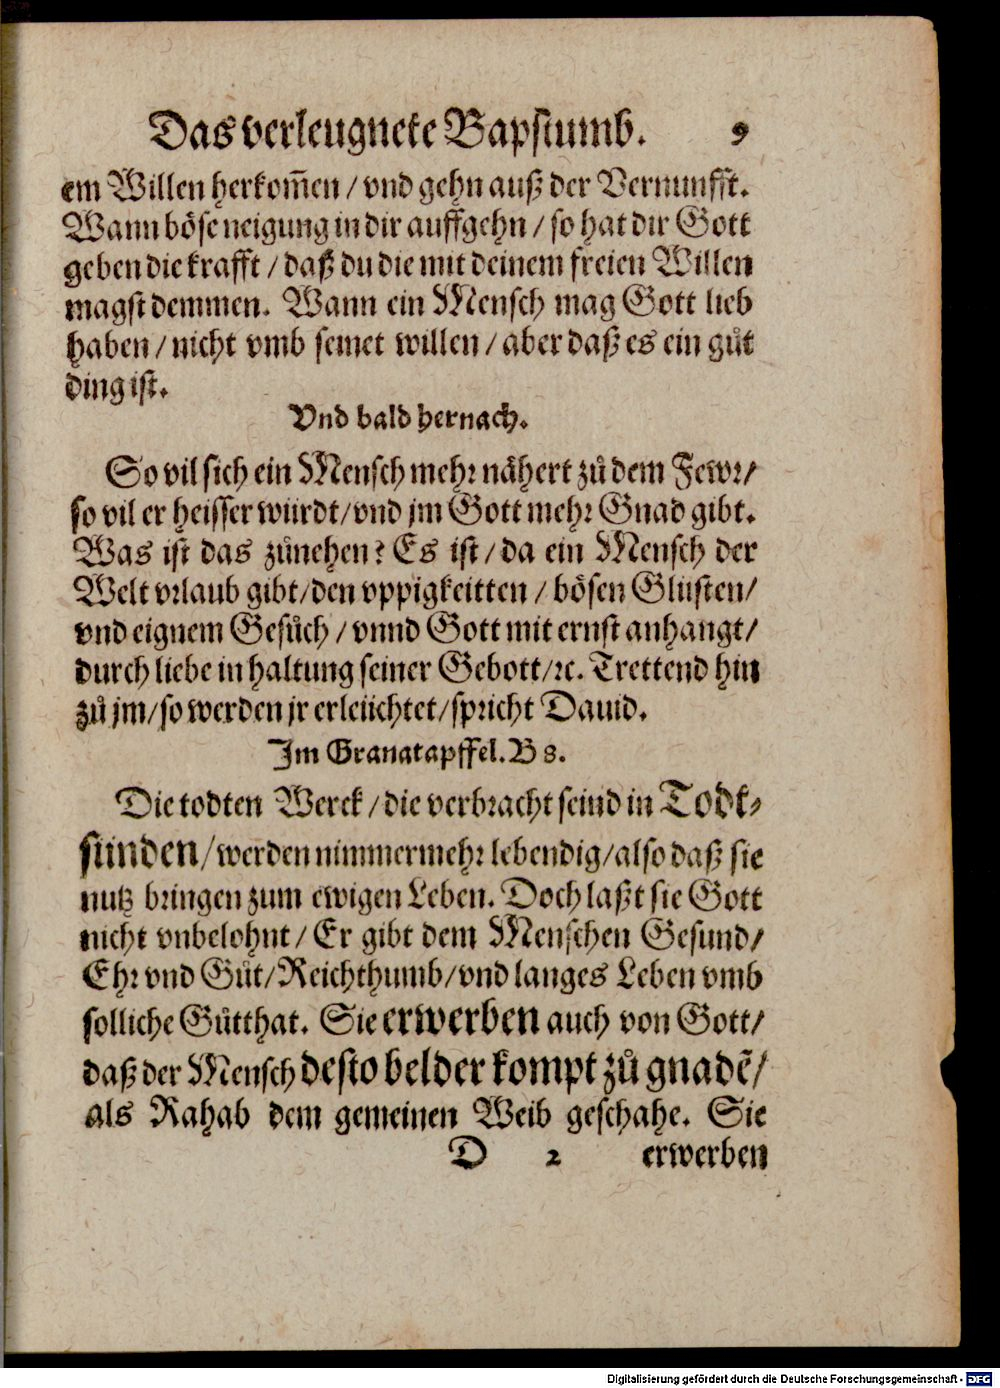 Das verleugnete Bapstumb. 9
em Willen herkom̃en / vnd gehn auß der Vernunfft.
Wann böse neigung in dir auffgehn / so hat dir Gott
geben die krafft / daß du die mit deinem freien Willen
magst demmen. Wann ein Mensch mag Gott lieb
haben / nicht vmb seinet willen / aber daß es ein gůt
ding ist.
Vnd bald hernach.
So vil sich ein Mensch mehr nähert zů dem Fewr/
so vil er heisser würdt/vnd jm Gott mehr Gnad gibt.
Was ist das zůnehen? Es ist / da ein Mensch der
Welt vrlaub gibt/den vppigkeitten / bösen Glüsten/
vnd eignem Gesůch / vnnd Gott mit ernst anhangt/
durch liebe in haltung seiner Gebott/ꝛc. Trettend hin
zů jm/so werden jr erleüchtet/spricht Dauid.
Im Granatapffel. B 8.
Die todten Werck / die verbracht seind in Todt⸗
sünden/werden nimmermehr lebendig/also daß sie
nutz bringen zum ewigen Leben. Doch laßt sie Gott
nicht vnbelohnt / Er gibt dem Menschen Gesund/
Ehr vnd Gůt/Reichthumb/vnd langes Leben vmb
solliche Gůtthat. Sie erwerben auch von Gott/
daß der Mensch desto belder kompt zů gnadẽ/
als Rahab dem gemeinen Weib geschahe. Sie
D 2 erwerben
Digitalisierung gefördert durch die Deutsche Forschungsgemeinschaft - DFG